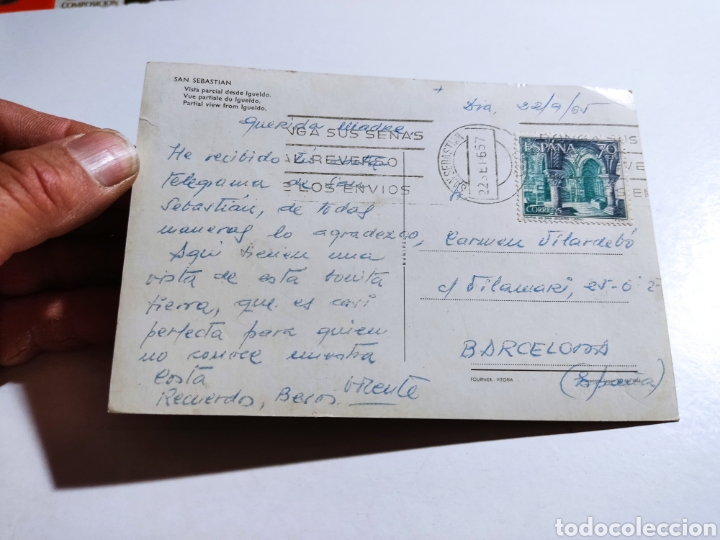 COMPOSICION
SAN SEBASTIAN
Vista parcial desde Igueldo.
Vue partiale du Igueldo.
Partial view from Igueldo.
Dia, 22/9/65
Querida Madre
NGA SUS SEÑAS
AL REVERSO
E LOS ENVIOS
SEBASTIAN
ESPAÑA 70
CORREOS
He recibido
Telegrama de San
Sebastián, de todas
maneras lo agradezco,
Aqui tienen una
vista de esta bonita
tierra, que es casi
perfecta para quien
no conoce nuestra
costa
Recuerdos, Besos. Vicente
Carmen Vilardebó
c/ Vilamari, 25-6
BARCELONA
(España)
FOURNIER. VITORIA
todocoleccion